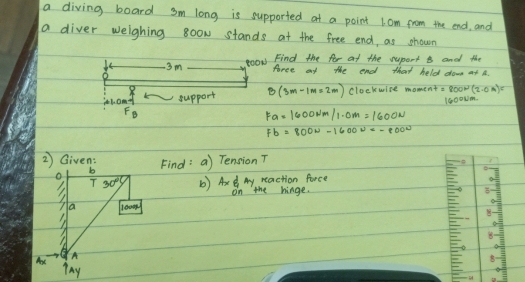 a diving board 3m long is supported at a point 1.0m from the end, and
a diver weighing 800N stands at the free end, as shown
3m
800N
1.0m
support
FB
Find the for at the suport B and the
force at the end that held down at A.
B (3m-1m=2m) clockwise moment = 800N (2.0m)=
1600Nm.
Fa = 1600Nm/1.0m = 1600N
Fb = 800N - 1600N = -800N
2) Given:
Find: a) Tension T
b) Ax & Ay reaction force
on the hinge.
b
T 30°
a
100N
Ax
A
Ay